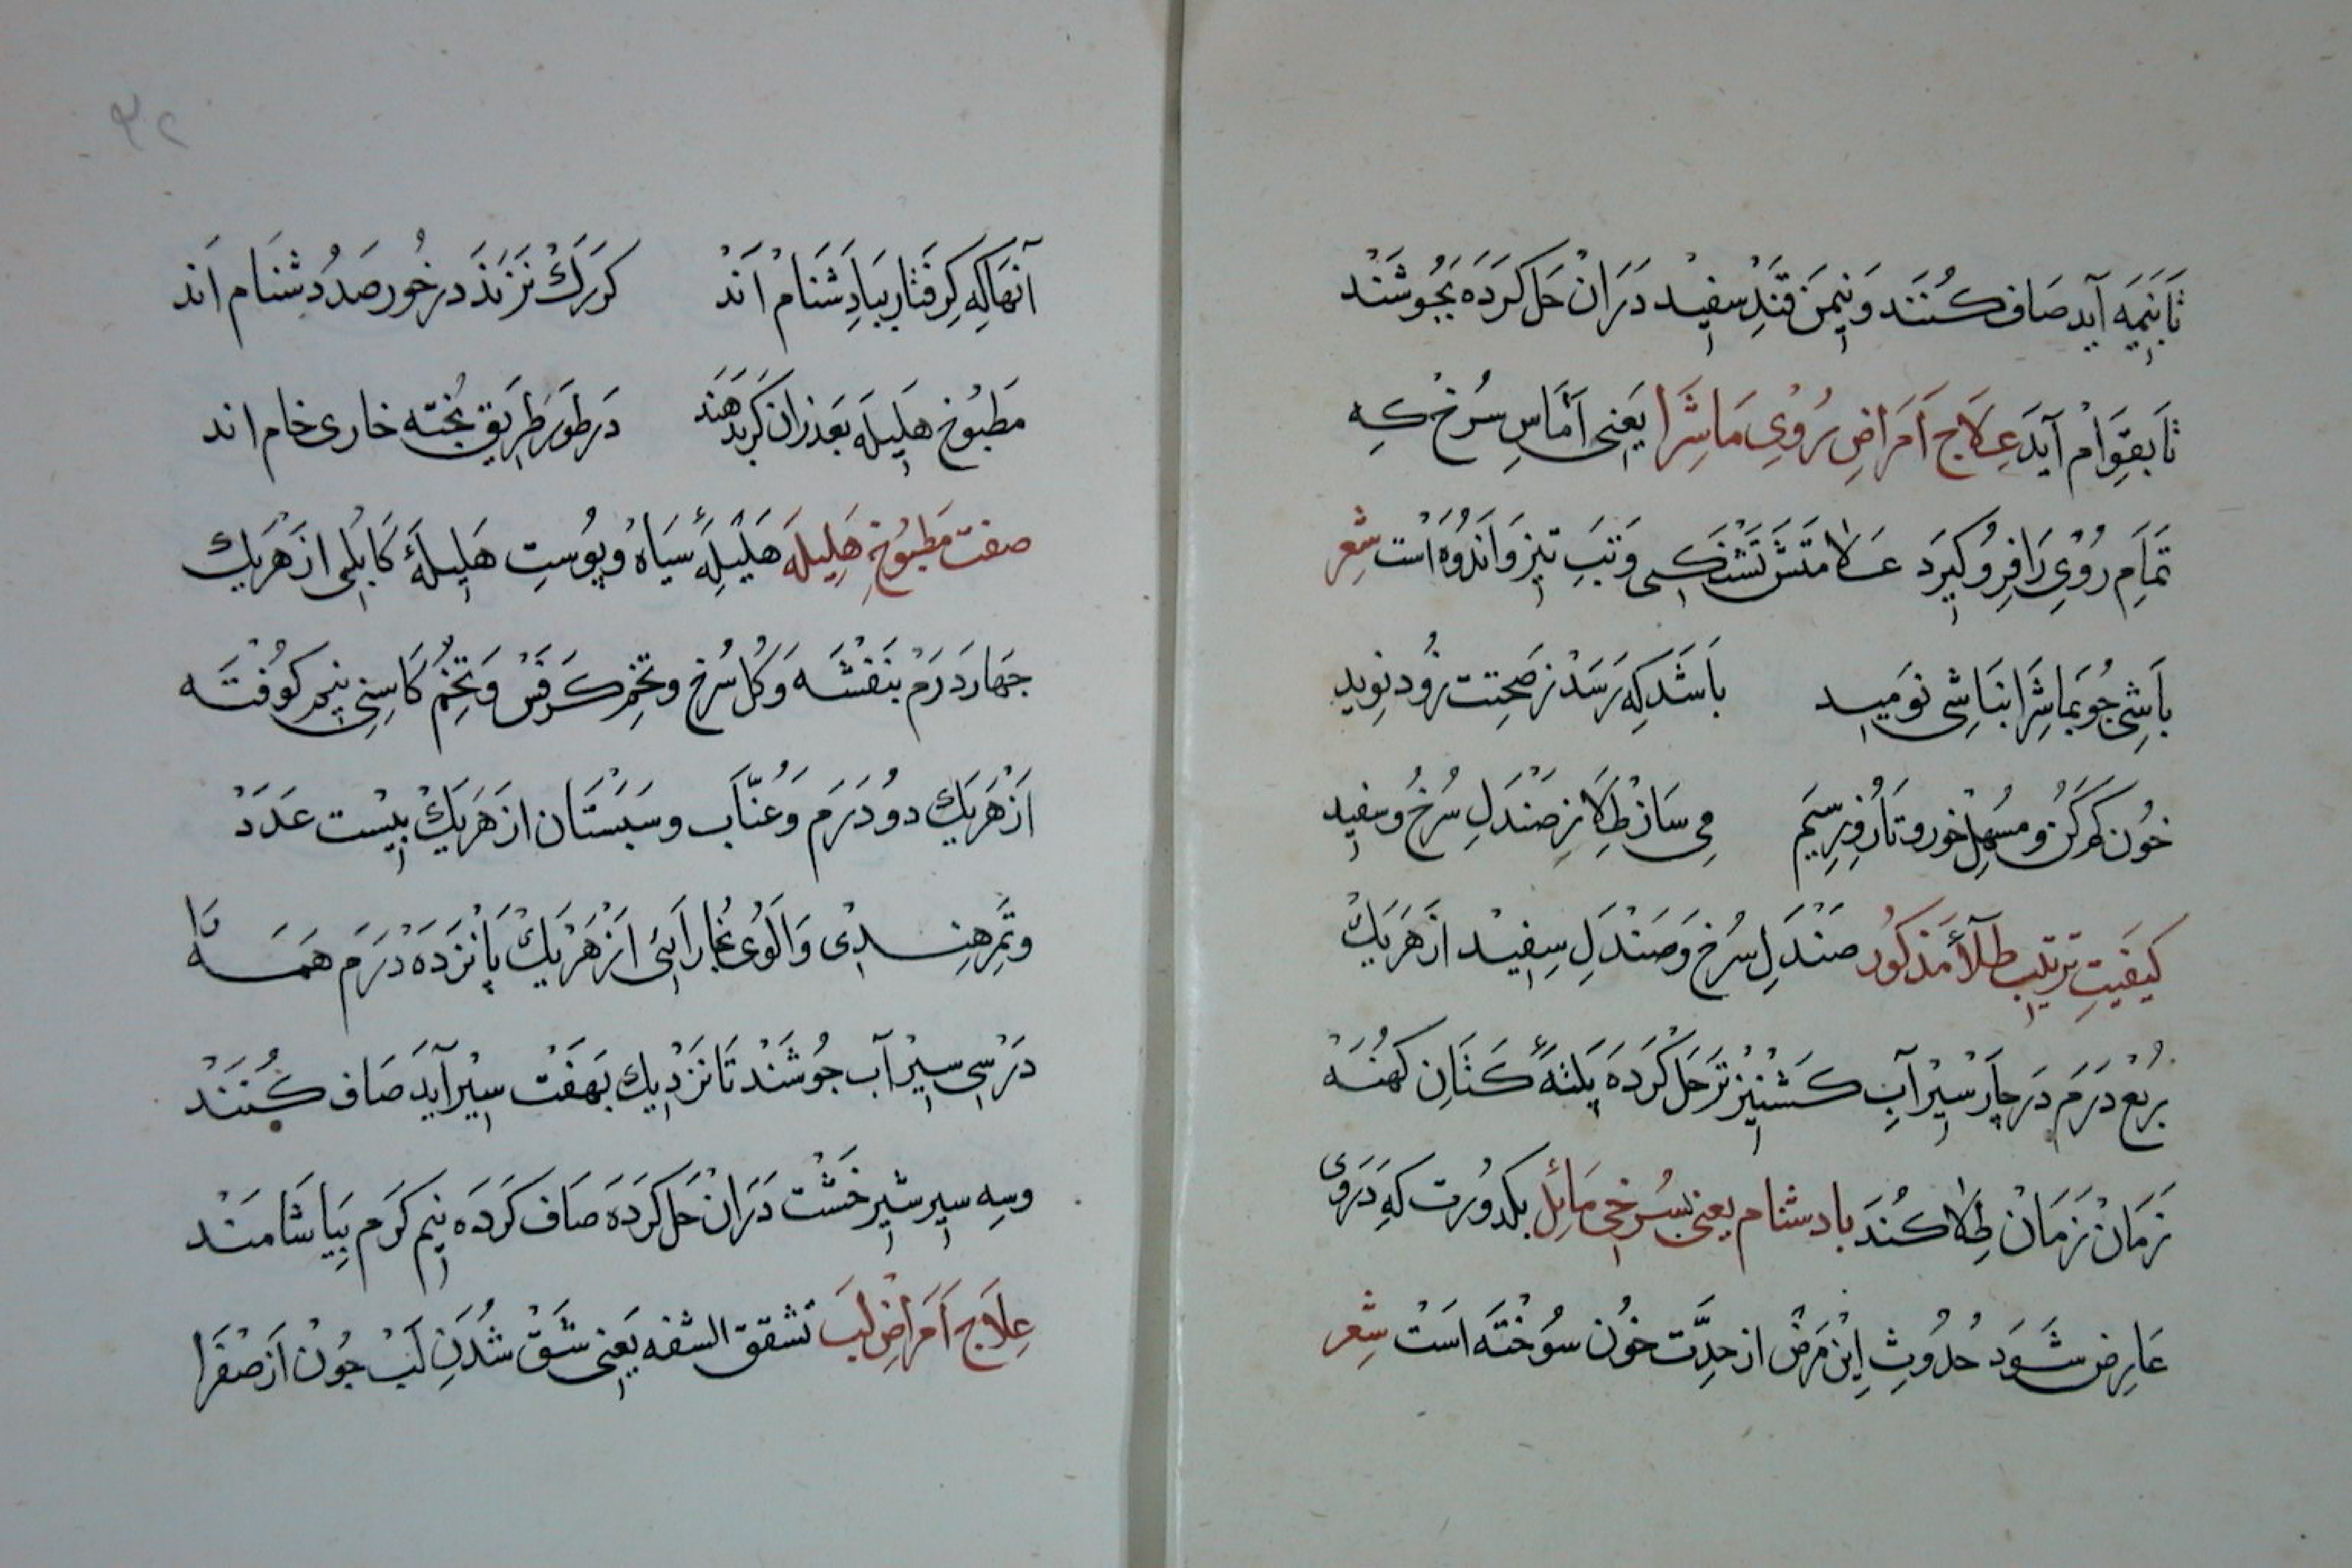 تا بنیمه آید صاف کنند و نیمن قند سفید دران حل کرده بجوشند
تا بقوام آید علاج امراض روی ماشرا یعنی آماس سرخ که
تمام روی را فرو کیرد علامتش تشنکی و تب تیز و اندوه است شعر
باشی جو بماشرا نباشی نومید باشد که رسد ز صحتت زود نوید
خون کم کن و مسهل خور و تا روز سیم می ساز طلا ز صندل سرخ و سفید
کیفیت ترتیب طلآء مذکور صندل سرخ و صندل سفید از هر یك
ربع درم در چار سیر آب کشنیز تر حل کرده پلته کتان کهنه
زمان زمان طلا کند بادشنام یعنی سرخی مائل بکدورت که در روی
عارض شود حدوث این مرض از حدت خون سوخته است شعر
آنها که کرفتار بباد شنام اند کر رك نزند در خور صد دشنام اند
مطبوخ هلیله بعد ازان کر بدهند در طور طریق پخته خاری خام اند
صفت مطبوخ هلیله هلیله سیاه و پوست هلیله کابلی از هر یك
جهار درم بنفشه و کل سرخ و تخم کرفس و تخم کاسنی نیم کوفته
از هر یك دو درم و عناب و سبستان از هر یك بیست عدد
و تمر هندی و الوی بخارائی از هر یك پانزده درم همه را
در سی سیر آب جوشند تا نزدیك بهفت سیر آید صاف کنند
و سه سیر شیر خشت دران حل کرده صاف کرده نیم کرم بیاشامند
علاج امراض لب تشقق الشفه یعنی شق شدن لب جون از صفرا